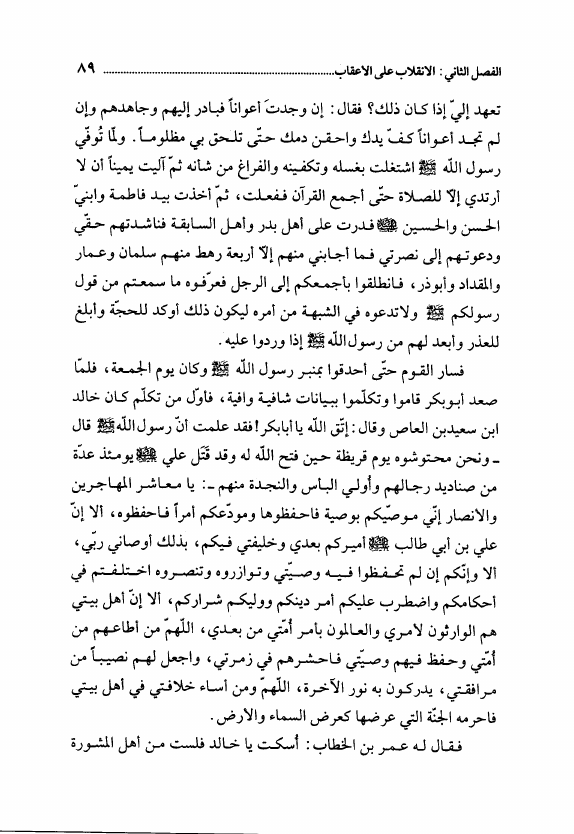 الفصل الثاني: الانقلاب على الأعقاب ........................................................ ٨٩
تعهد إليّ إذا كان ذلك؟ فقال: إن وجدتَ أعواناً فبادر إليهم وجاهدهم وإن
لم تجد أعواناً كفّ يدك واحقن دمك حتّى تلحق بي مظلوماً. ولمّا تُوفّي
رسول الله ﷺ اشتغلت بغسله وتكفينه والفراغ من شأنه ثمّ آليت يميناً أن لا
أرتدي إلّا للصلاة حتّى أجمع القرآن ففعلت، ثمّ أخذت بيد فاطمة وابنيّ
الحسن والحسين فدرت على أهل بدر وأهل السابقة فناشدتهم حقّي
ودعوتهم إلى نصرتي فما أجابني منهم إلّا أربعة رهط منهم سلمان وعمار
والمقداد وأبوذر، فانطلقوا بأجمعكم إلى الرجل فعرّفوه ما سمعتم من قول
رسولكم ﷺ ولاتدعوه في الشبهة من أمره ليكون ذلك أوكد للحجّة وأبلغ
للعذر وأبعد لهم من رسول الله ﷺ إذا وردوا عليه.
فسار القوم حتّى أحدقوا بمنبر رسول الله ﷺ وكان يوم الجمعة، فلمّا
صعد أبوبكر قاموا وتكلّموا ببيانات شافية وافية، فأوّل من تكلّم كان خالد
ابن سعيدبن العاص وقال: إتّق الله يا أبابكر! فقد علمت أنّ رسول الله ﷺ قال
ـ ونحن محتوشوه يوم قريظة حين فتح الله له وقد قَتَل علي يومئذ عدّة
من صناديد رجالهم وأولي البأس والنجدة منهم ـ: يا معاشر المهاجرين
والانصار إنّي موصيّكم بوصية فاحفظوها ومودّعكم أمراً فاحفظوه، ألا إنّ
علي بن أبي طالب أميركم بعدي وخليفتي فيكم، بذلك أوصاني ربّي،
ألا وإنّكم إن لم تحفظوا فيه وصيّتي وتوازروه وتنصروه اختلفتم في
أحكامكم واضطرب عليكم أمر دينكم ووليكم شراركم، ألا إنّ أهل بيتي
هم الوارثون لأمري والعالمون بأمر أُمّتي من بعدي، اللّهمّ من أطاعهم من
أُمّتي وحفظ فيهم وصيّتي فاحشرهم في زمرتي، واجعل لهم نصيباً من
مرافقتي، يدركون به نور الآخرة، اللّهمّ ومن أساء خلافتي في أهل بيتي
فاحرمه الجنّة التي عرضها كعرض السماء والأرض.
فقال له عمر بن الخطاب: أُسكت يا خالد فلست من أهل المشورة